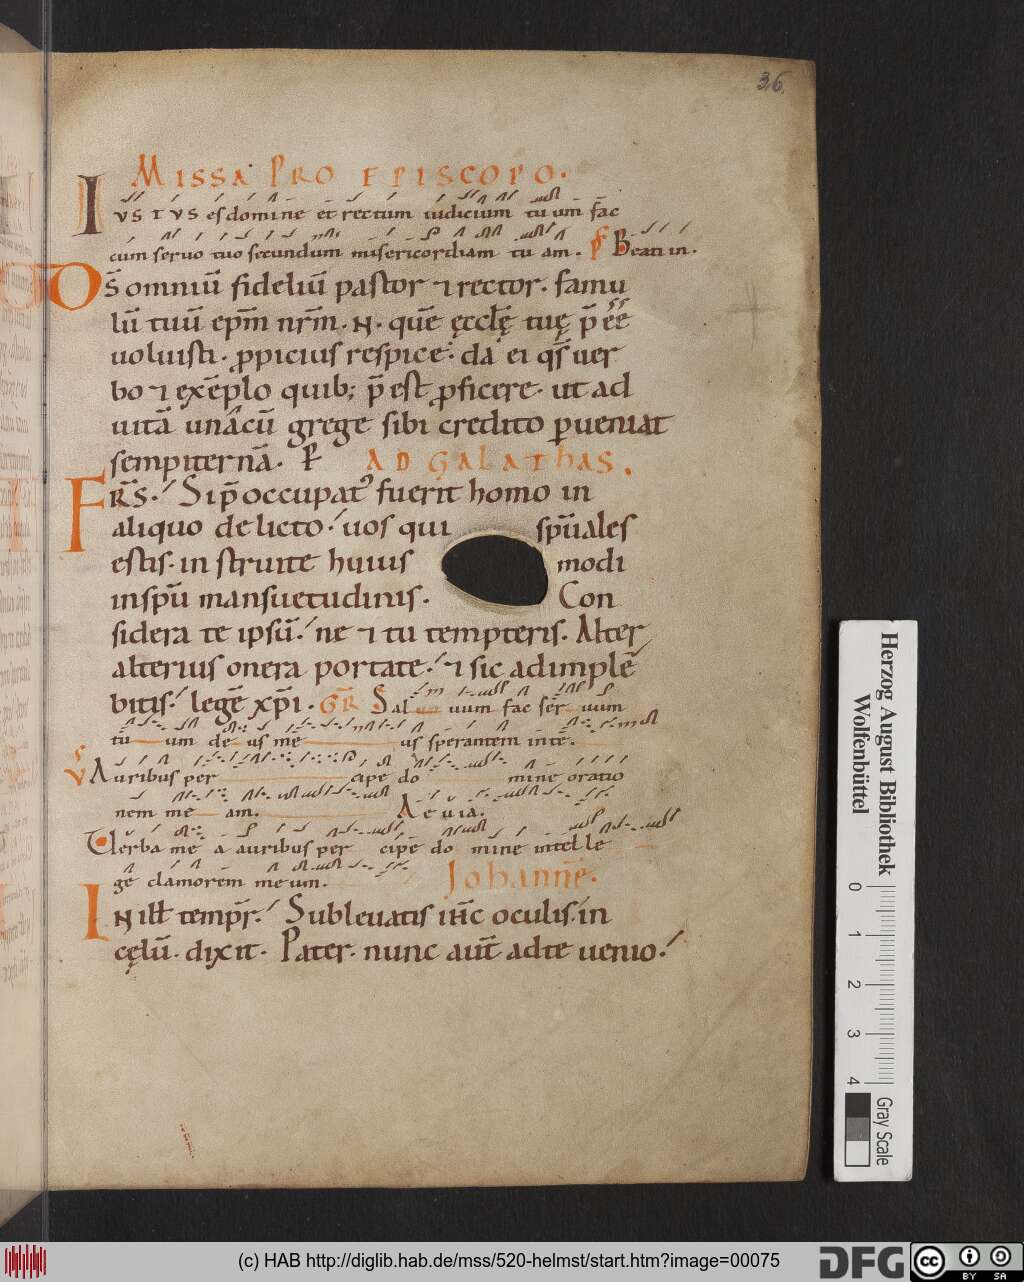 36.
MISSA PRO EPISCOPO.
IVSTVS es domine et rectum iudicium tuum fac̄
cum seruo tuo secundum misericordiam tu am. Beati in.
DS̄ omniū fideliū pastor ⁊ rector. famu
lū tuū ep̄m nr̄m. N. quē ęccłę tuę p̄ eē
uoluisti. ꝓpicius respice. da ei qs̄ uer
bo ⁊ exēplo quib; p̄ est ꝓficere. ut ad
uitā unacū grege sibi credito ꝑueniat
sempiternā. AD GALATHAS.
FRS̄. Si p̄occupat᷒ fuerit homo in
aliquo delicto. uos qui sp̄uales
estis. in struite huius modi
in sp̄u mansuetudinis. Con
sidera te ipsū. ne ⁊ tu tempteris. Alter
alterius onera portate. ⁊ sic adimplē
bitis. legē xp̄i. GR̄ Sal uum fac ser uum
tū um de us me us sperantem in te.
V Auribus per cipe do mine oratio
nem me am. Aeuia.
Uerba me a auribus per cipe do mine intel le
ge clamorem me um. Johannē.
IN ill̄ temp̄r. Subleuatis ih̄c oculis in
cęlū. dixit. Pater. nunc aut̄ ad te uenio.
Herzog August Bibliothek
Wolfenbüttel
0 1 2 3 4
Gray Scale
(c) HAB http://diglib.hab.de/mss/520-helmst/start.htm?image=00075
DFG
cc
BY SA